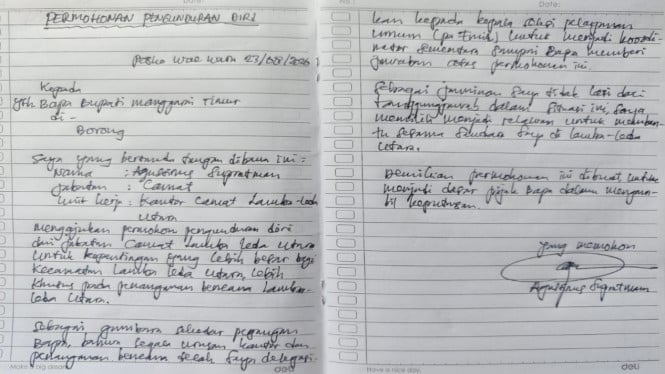 Date:
PERMOHONAN PENGUNDURAN DIRI
Posko Wae Wara 23/08/2026
Kepada
Yth Bapa Bupati Manggarai Timur
di -
Borong
Saya yang bertanda tangan dibawa ini :
Nama : Agustinus Supratman
Jabatan : Camat
Unit kerja : Kantor Camat Lamba-Leda
Utara
mengajukan permohon pengunduran diri
dari jabatan Camat Lamba Leda Utara
untuk kepentingan yang lebih besar bagi
Kecamatan Lamba Leda Utara, lebih
khusus pada penanganan bencana Lamba-
Leda Utara.
Sebagai gambara sekedar pegangan
Bapa, bahwa segala urusan kantor dan
penanganan bencana telah saya delegasi-
Make big dream.
deli
No.:
Date:
kan kepada kepala seksi pelayanan
umum (pa Enid) untuk menjadi koordi-
nator sementara sampai Bapa memberi
jawaban atas permohonan ini.
Sebagai jaminan saya tidak lari dari
tanggungjawab dalam situasi ini, saya
memilih menjadi relawan untuk memban-
tu sesama saudara saya di Lamba-Leda
Utara.
Demikian permohonan ini dibuat, untuk
menjadi dasar pijak Bapa dalam mengam-
bil keputusan.
yang memohon
Agustinus Supratman
Have a nice day.
deli